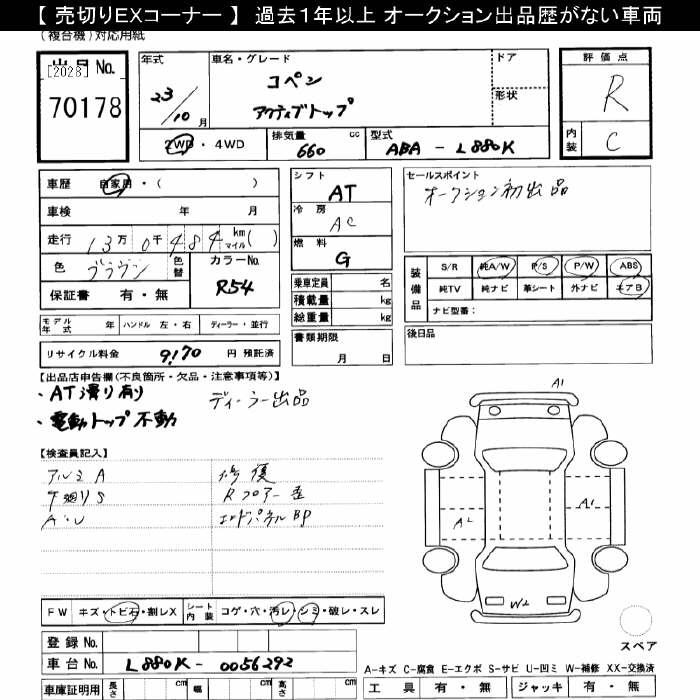 【 売切りEXコーナー 】 過去1年以上 オークション出品歴がない車両
(複合機)対応用紙
出品 No.
[2028]
70178
年式
23/10月
車名・グレード
コペン
アクティブトップ
ドア
形状
評価点
R
内装
C
2WD・4WD
排気量 660 cc
型式 ABA - L880K
車歴 自家用・( )
車検 年 月
走行 13万 0千 484 km マイル( )
色 ブラウン
色替
カラーNo. R54
保証書 有・無
シフト
AT
冷房
AC
燃料
G
乗車定員 名
積載量 kg
総重量 kg
セールスポイント
オークション初出品
装備品
S/R 純A/W P/S P/W ABS
純TV 純ナビ 革シート 外ナビ エアB
ナビ型番:
モデル年式 年 ハンドル 左・右 ディーラー・並行
リサイクル料金 9,170 円 預託済
書類期限
月 日
後日品
【出品店申告欄(不良箇所・欠品・注意事項等)】
・AT滑り有
ディーラー出品
・電動トップ不動
【検査員記入】
アルミ A
下廻り S
A・U
修復
Rフロアー歪
エンドパネルBP
A1
A2
A1
W2
スペア
FW キズ・トビ石・割レX
シート内装 コゲ・穴・汚レ・シミ・破レ・スレ
登録 No.
車台 No. L880K - 0056292
車庫証明用 長さ cm 幅 cm 高さ cm
A-キズ C-腐食 E-エクボ S-サビ U-凹ミ W-補修 XX-交換済
工具 有・無 ジャッキ 有・無